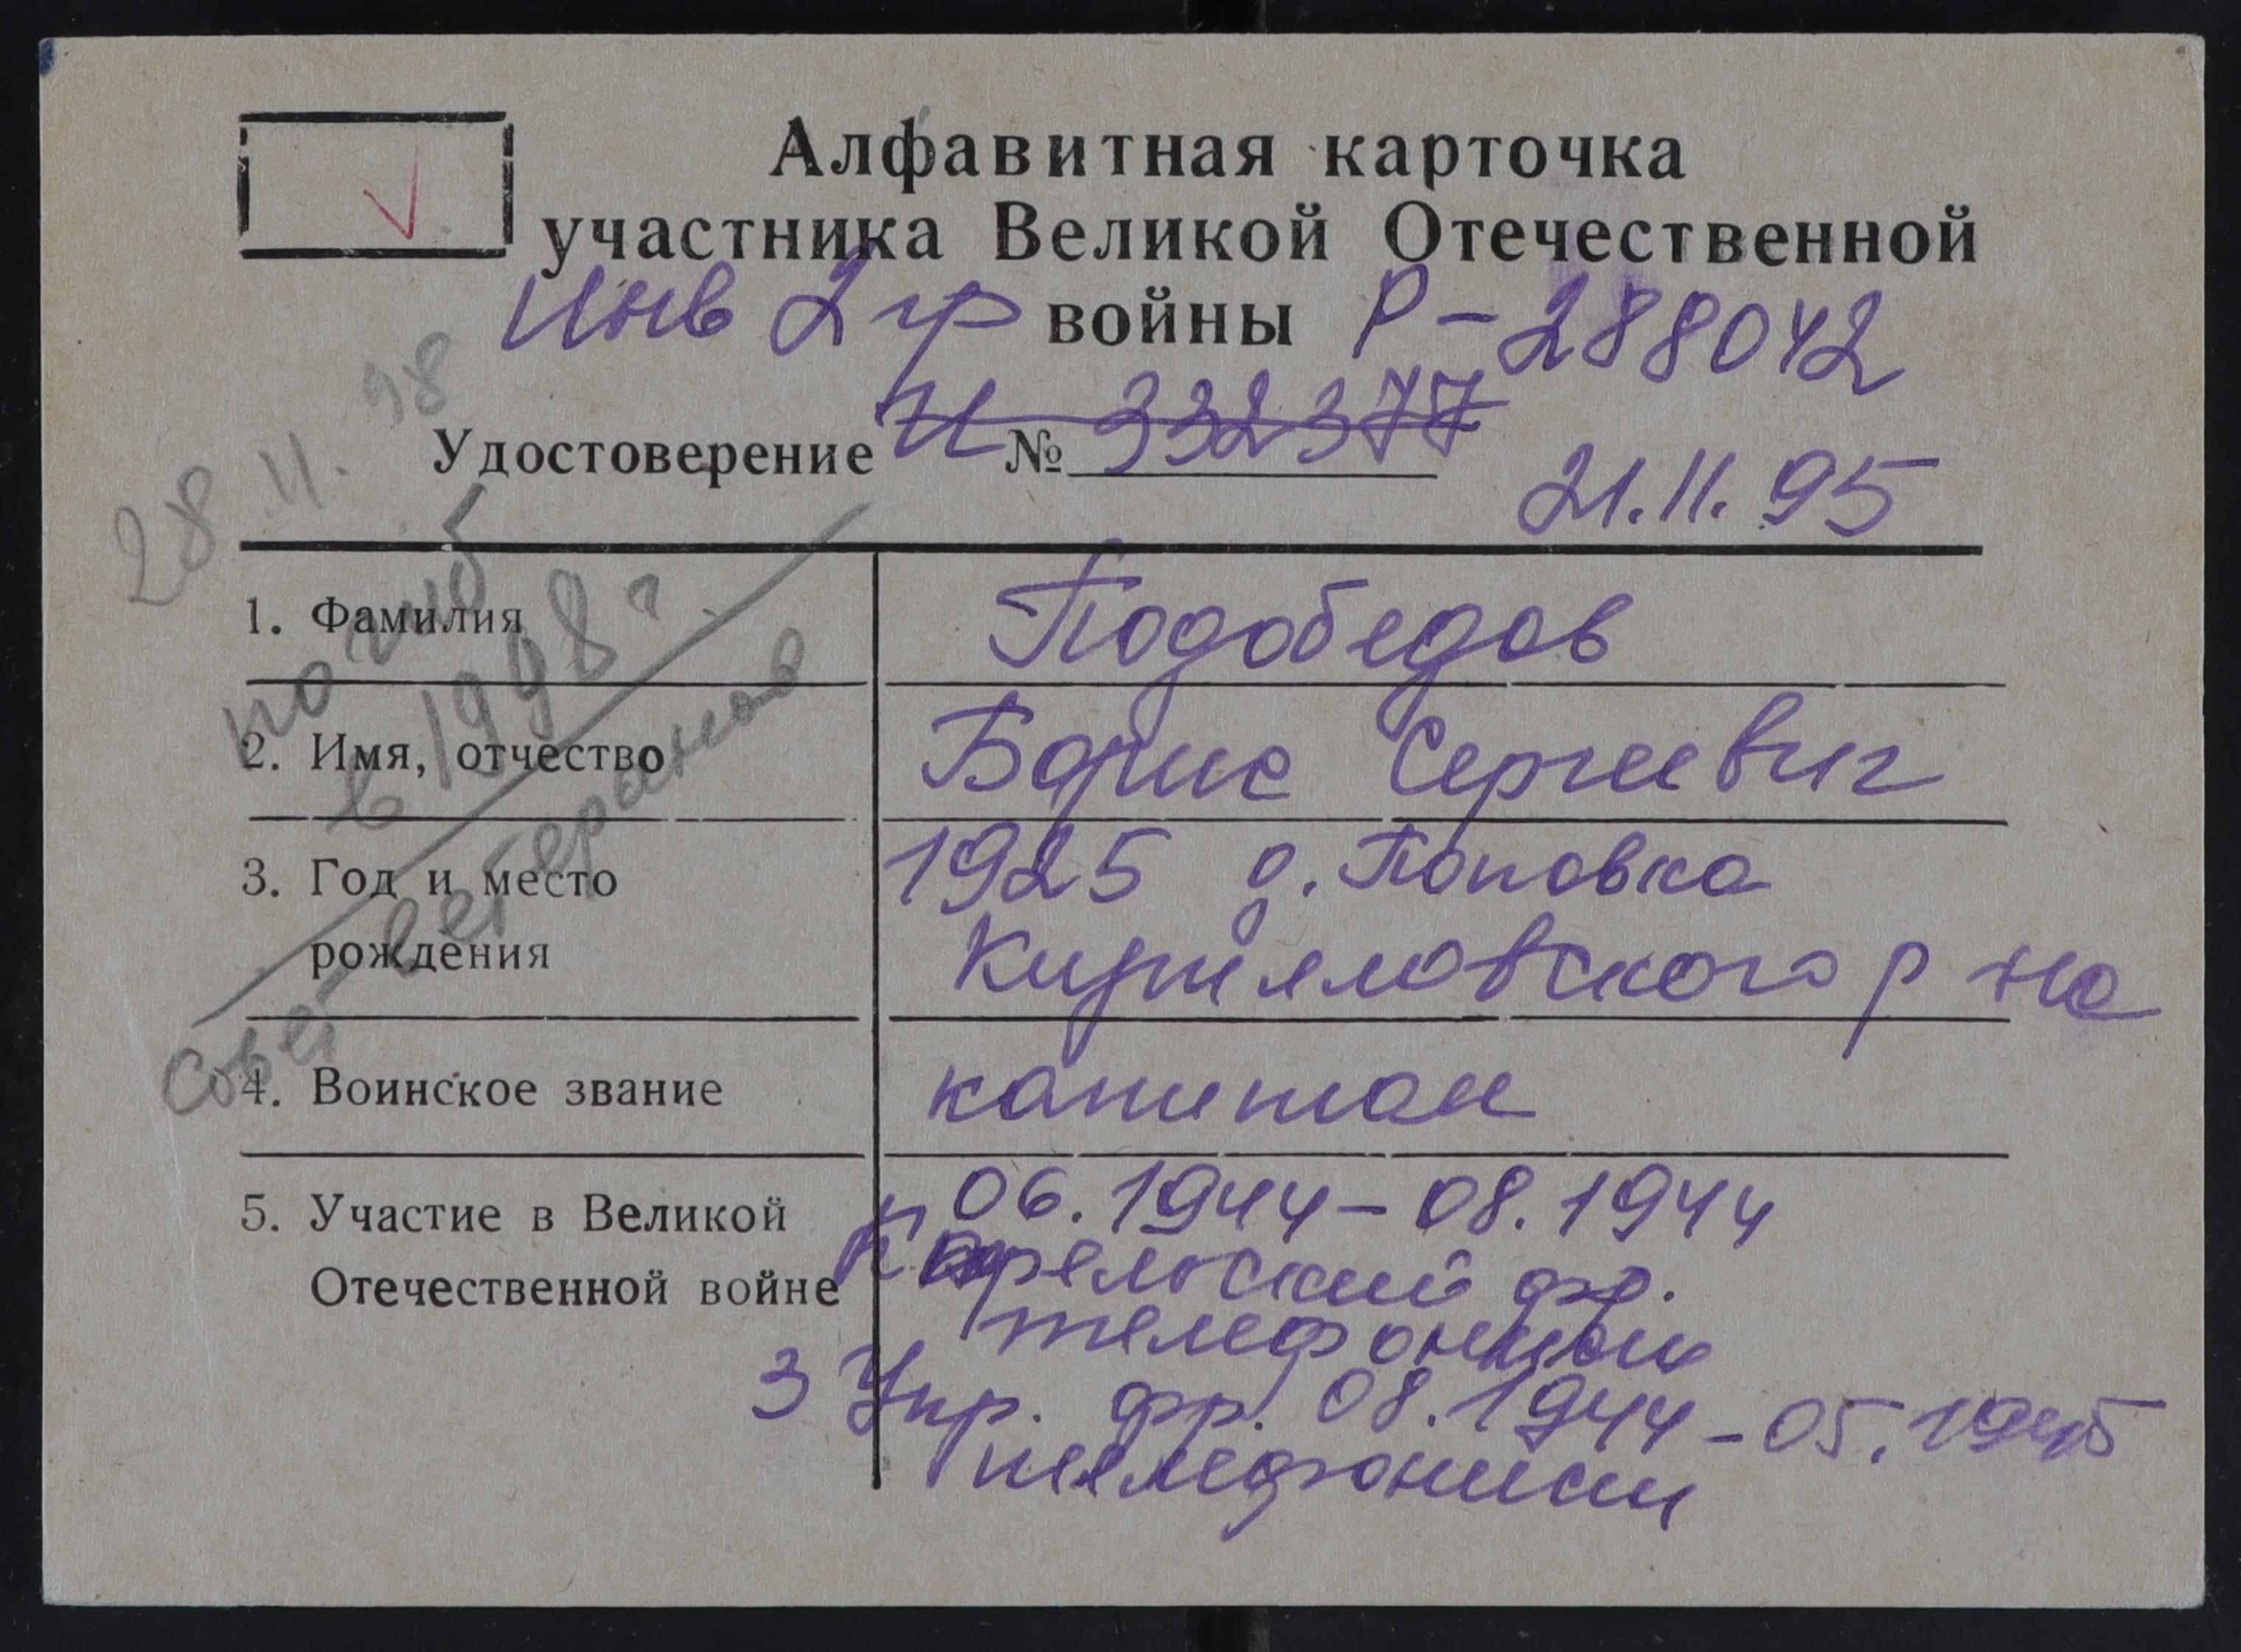 Алфавитная карточка
участника Великой Отечественной
Инв 2 гр войны Р-288042
Удостоверение И № 332377
21.11.95
28.11.98
погиб
в 1998 г.
Совет ветеранов
1. Фамилия Подобедов
2. Имя, отчество Борис Сергеевич
3. Год и место 1925 д. Поповка
рождения Кирилловского р на
4. Воинское звание капитан
5. Участие в Великой 06.1944-08.1944
Отечественной войне Карельский фр.
телефонист
3 Укр. фр. 08.1944-05.1945
телефонист